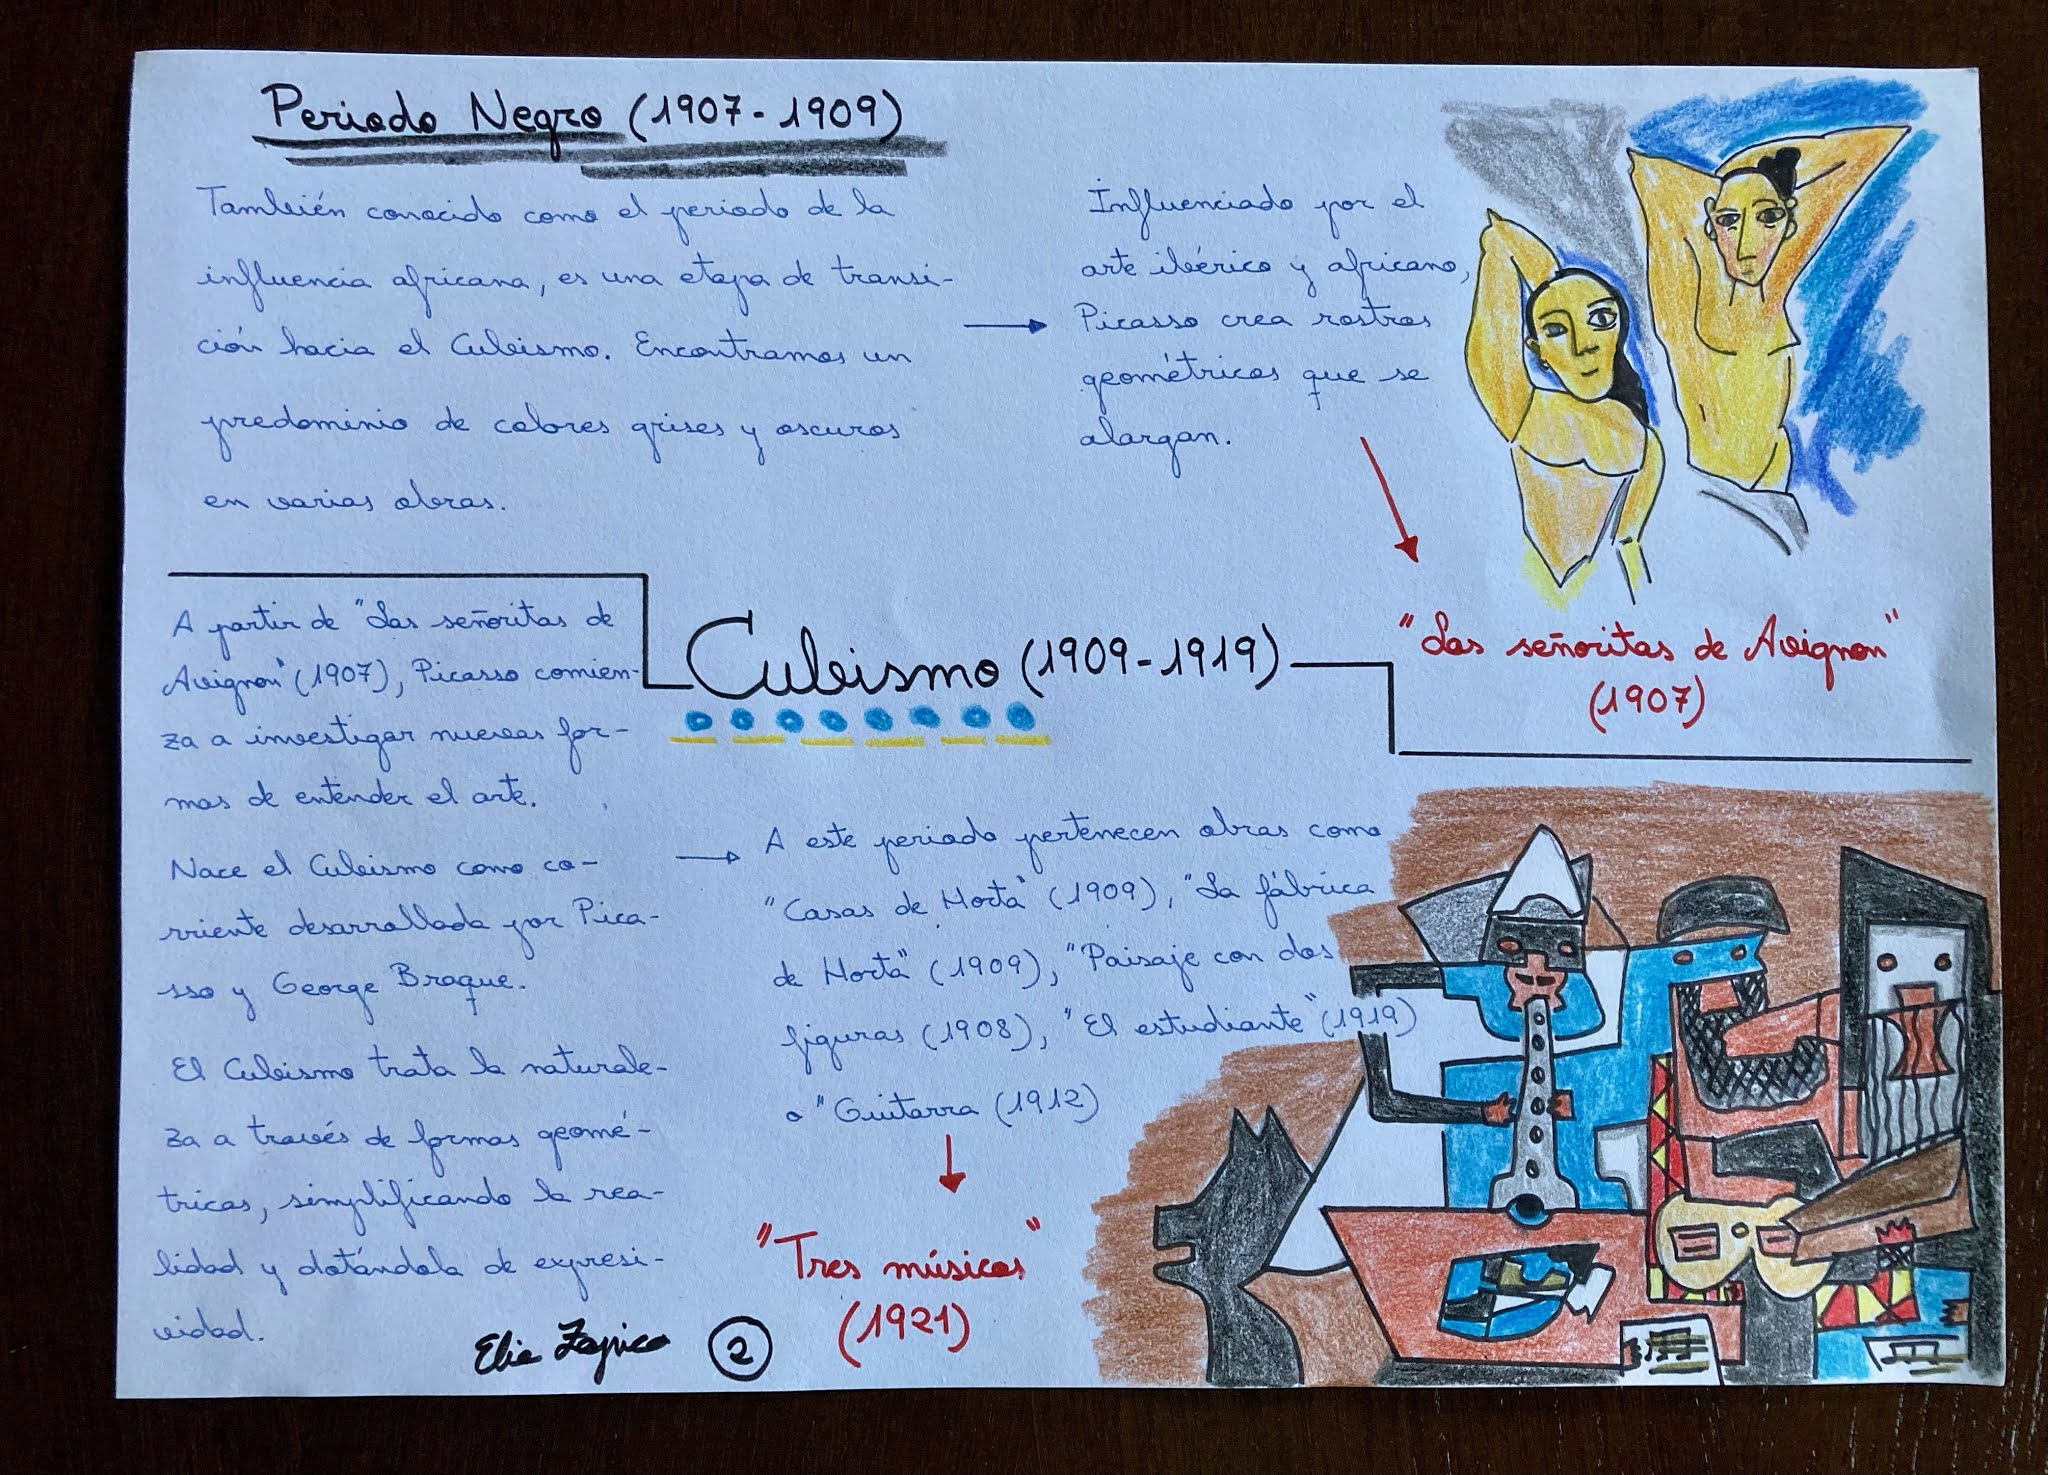 Periodo Negro (1907-1909)
También conocido como el periodo de la
influencia africana, es una etapa de transi-
ción hacia el Cubismo. Encontramos un
predominio de colores grises y oscuros
en varias obras.
Influenciado por el
arte ibérico y africano,
Picasso crea rostros
geométricos que se
alargan.
"Las señoritas de Avignon"
(1907)
Cubismo (1909-1919)
A partir de "Las señoritas de
Avignon" (1907), Picasso comien-
za a investigar nuevas for-
mas de entender el arte.
Nace el Cubismo como co-
rriente desarrollada por Pica-
sso y George Braque.
El Cubismo trata la naturale-
za a través de formas geomé-
tricas, simplificando la rea-
lidad y dotándola de expresi-
vidad.
A este periodo pertenecen obras como
"Casas de Horta" (1909), "La fábrica
de Horta" (1909), "Paisaje con dos
figuras (1908), "El estudiante" (1919)
o "Guitarra (1912)
"Tres músicos"
(1921)
Elia Zapico
2